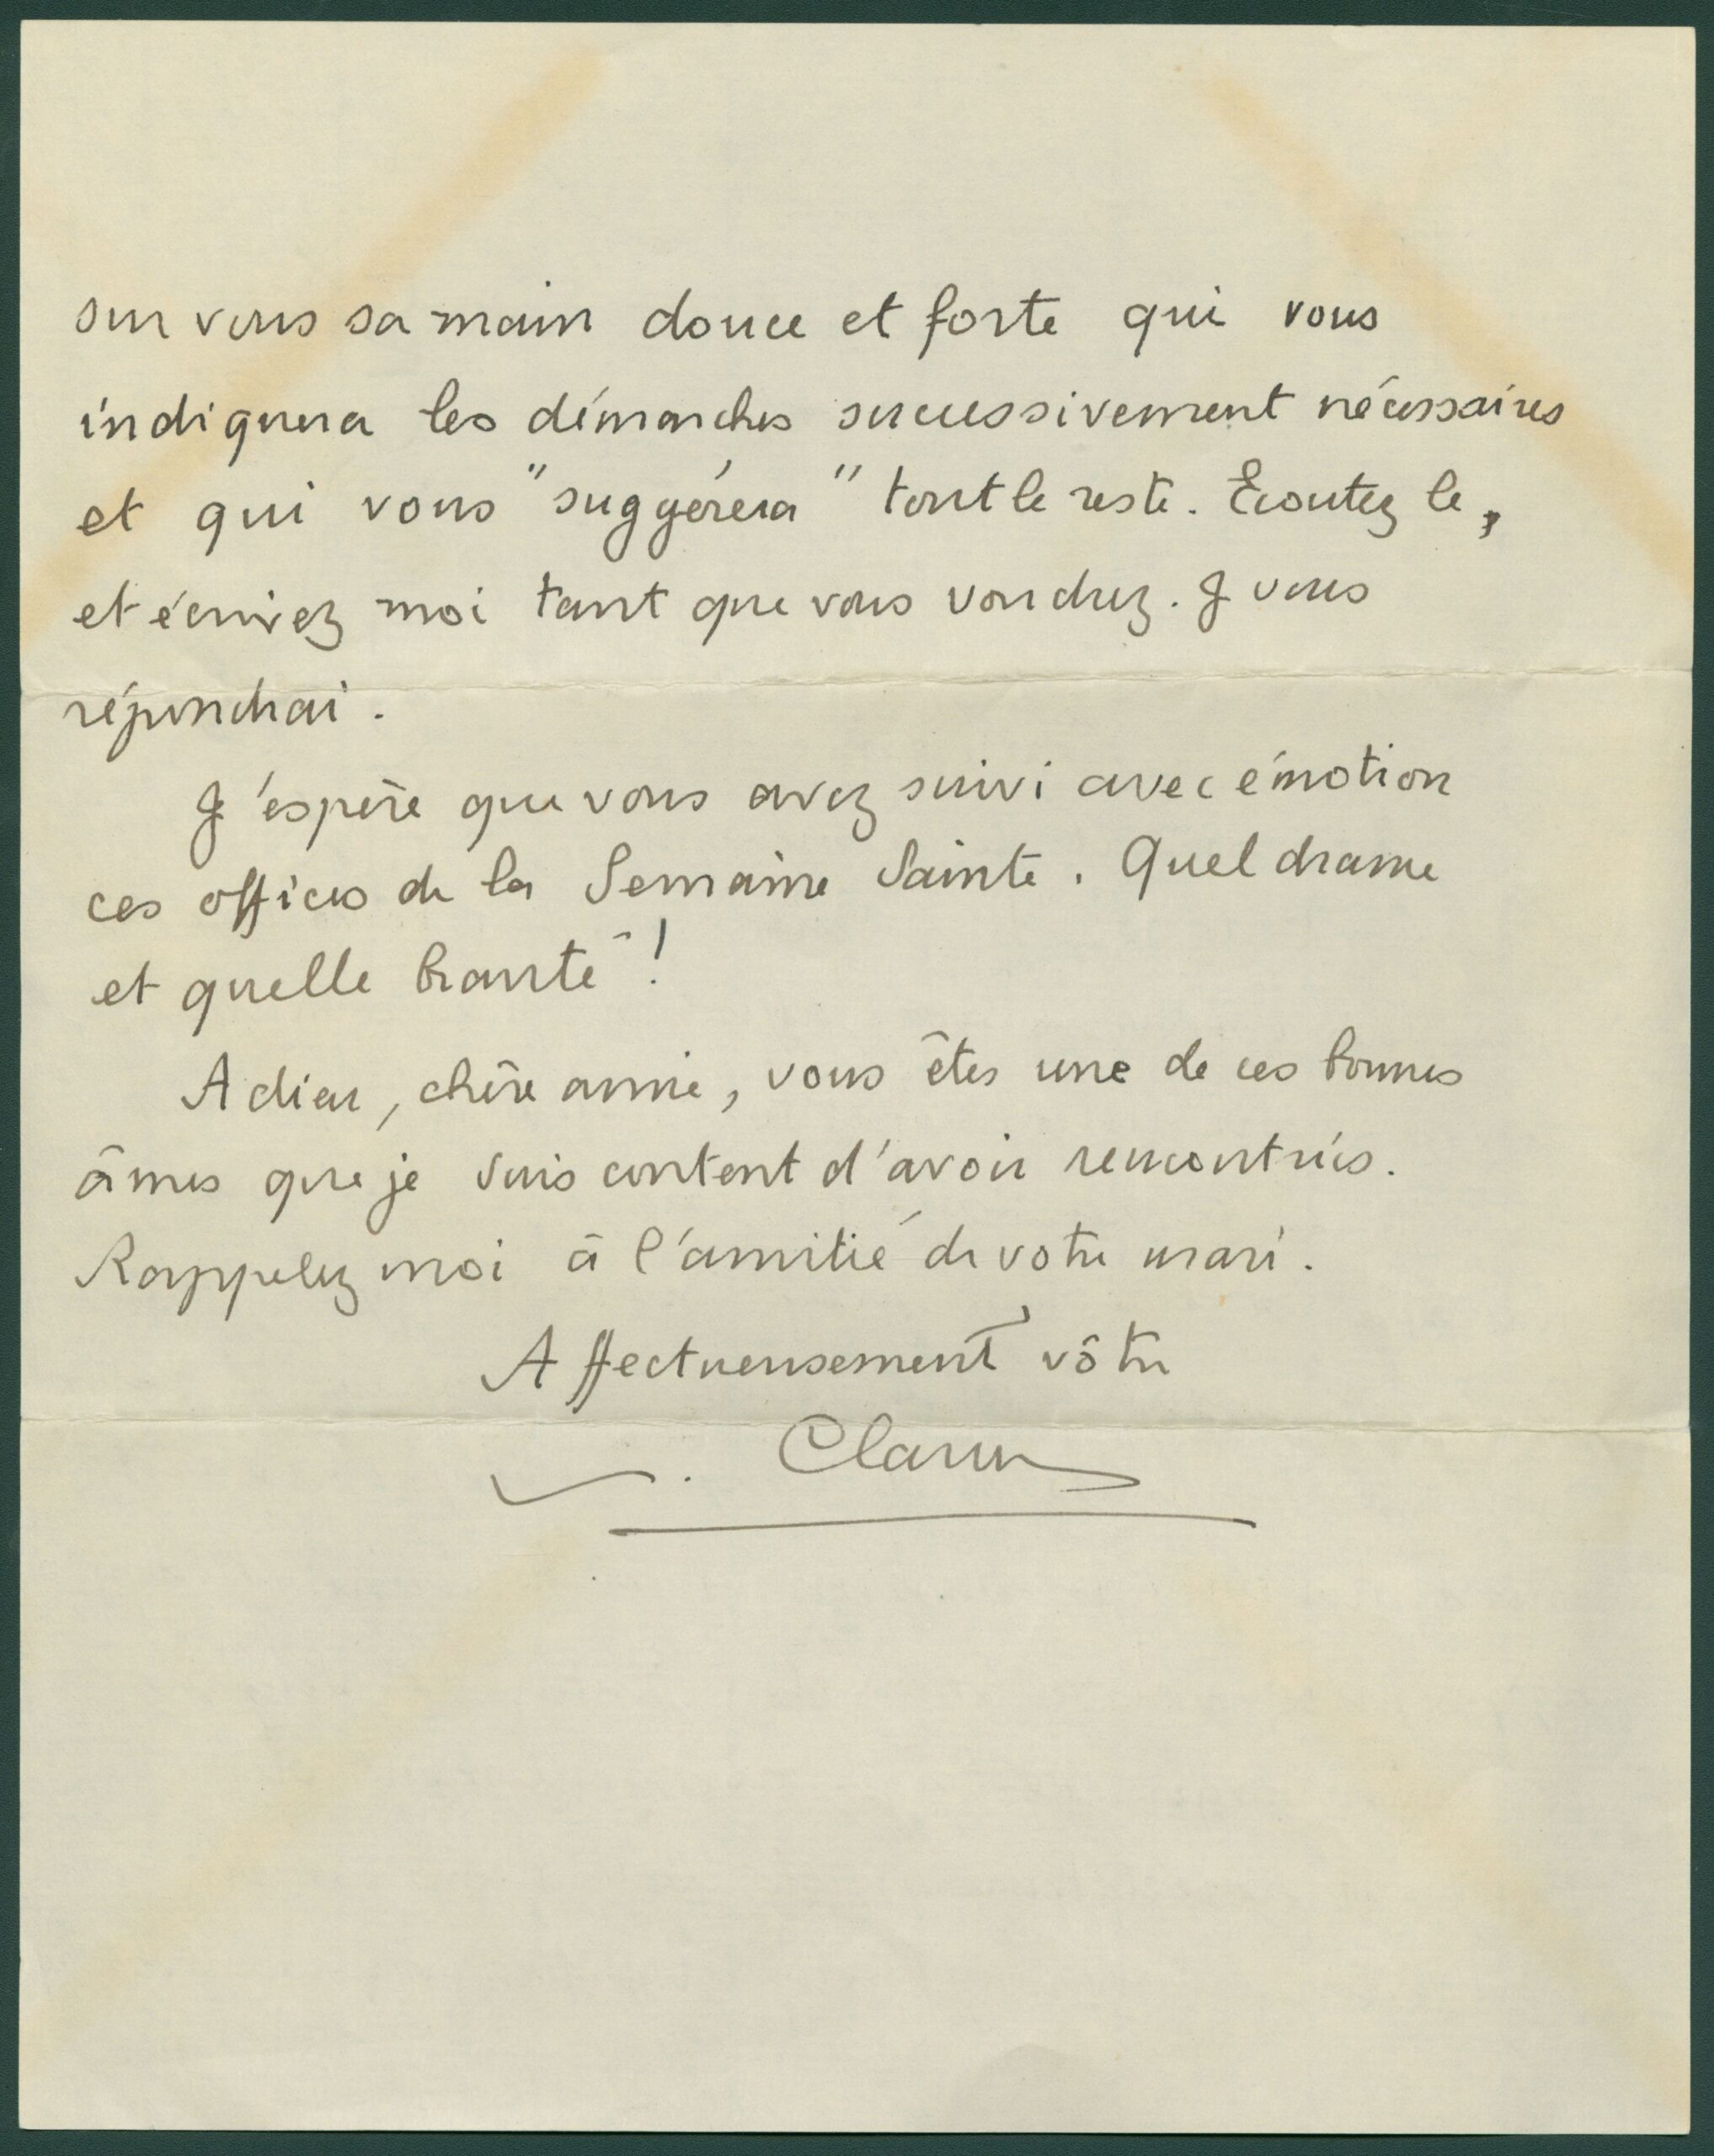 sur vous sa main douce et forte qui vous
indiquera les démarches successivement nécessaires
et qui vous "suggérera" tout le reste. Ecoutez le,
et écrivez moi tant que vous voudrez. Je vous
répondrai.
J'espère que vous avez suivi avec émotion
ces offices de la Semaine Sainte. Quel drame
et quelle beauté !
A dieu, chère amie, vous êtes une de ces bonnes
âmes que je suis content d'avoir rencontrées.
Rappelez moi à l'amitié de votre mari.
Affectueusement vôtre
Claudel